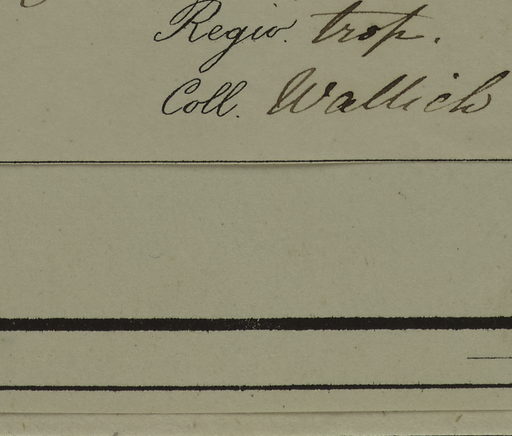 Regio. trop.
Coll. Wallich